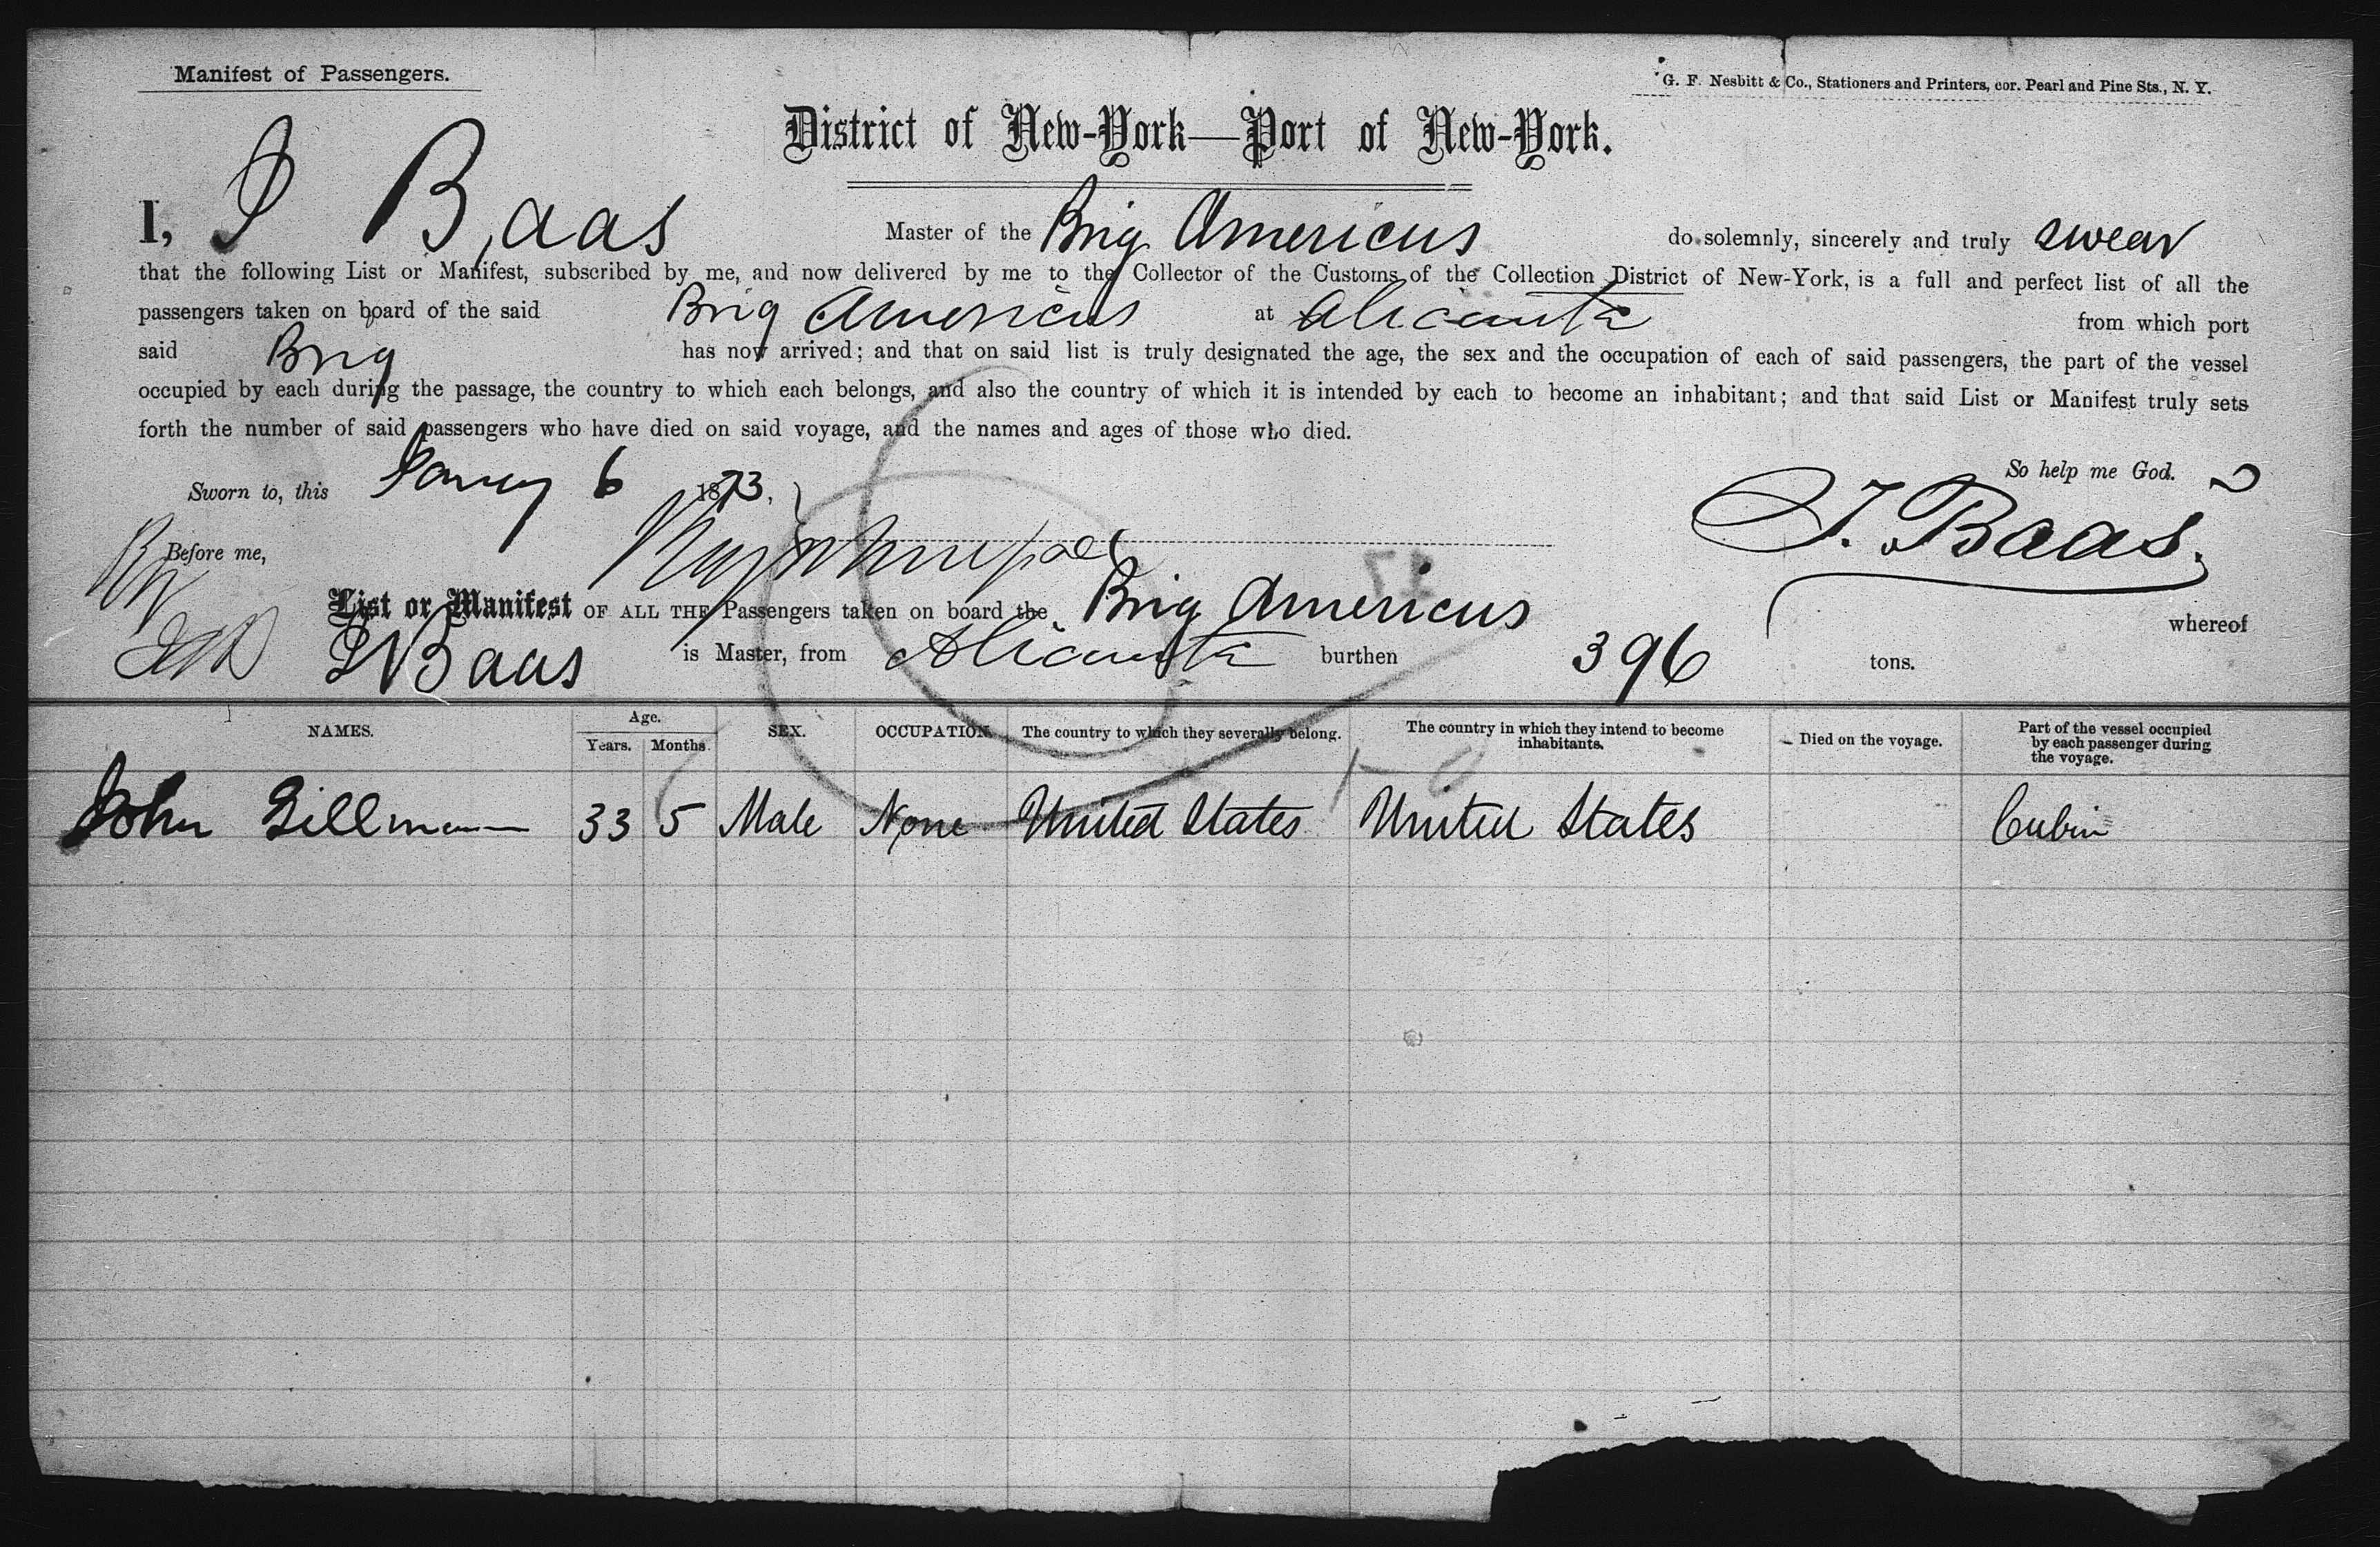 Manifest of Passengers.
G. F. Nesbitt & Co., Stationers and Printers, cor. Pearl and Pine Sts., N. Y.
District of New-York—Port of New-York.
I, J Baas Master of the Brig Americus do solemnly, sincerely and truly swear
that the following List or Manifest, subscribed by me, and now delivered by me to the Collector of the Customs of the Collection District of New-York, is a full and perfect list of all the
passengers taken on board of the said Brig Americus at Alicante from which port
said Brig has now arrived; and that on said list is truly designated the age, the sex and the occupation of each of said passengers, the part of the vessel
occupied by each during the passage, the country to which each belongs, and also the country of which it is intended by each to become an inhabitant; and that said List or Manifest truly sets
forth the number of said passengers who have died on said voyage, and the names and ages of those who died.
So help me God.
Sworn to, this 6 1873.
J. Baas.
Before me,
List or Manifest OF ALL THE Passengers taken on board the Brig Americus whereof
J Baas is Master, from Alicante burthen 396 tons.
NAMES. Age. Years. Months. SEX. OCCUPATION. The country to which they severally belong. The country in which they intend to become inhabitants. Died on the voyage. Part of the vessel occupied by each passenger during the voyage.
John Gillman 33 5 Male None United States United States Cubin